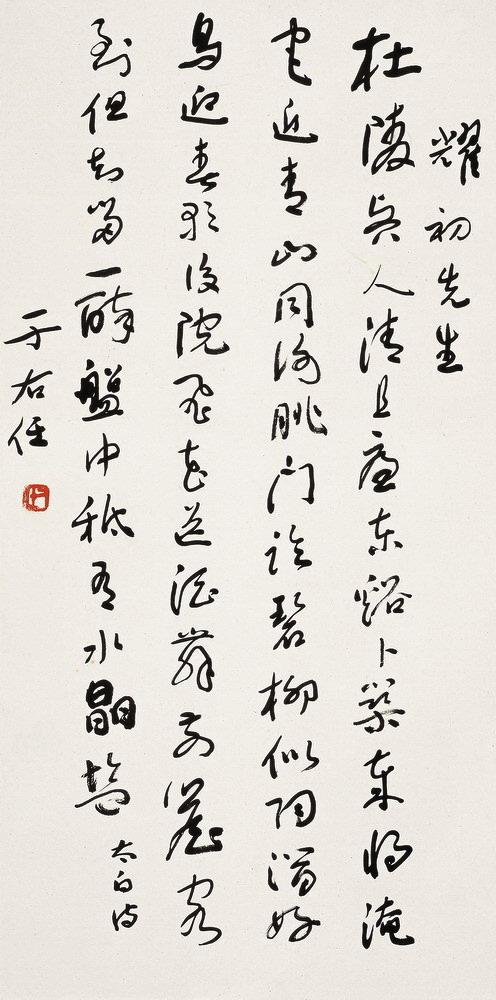 耀初先生
杜陵賢人清且廉東谿卜築歲將淹
宅近青山同謝朓門垂碧柳似陶潛好
鳥迎春歌後院飛花送酒舞前簷客
到但知留一醉盤中祇有水晶鹽 太白詩
于右任